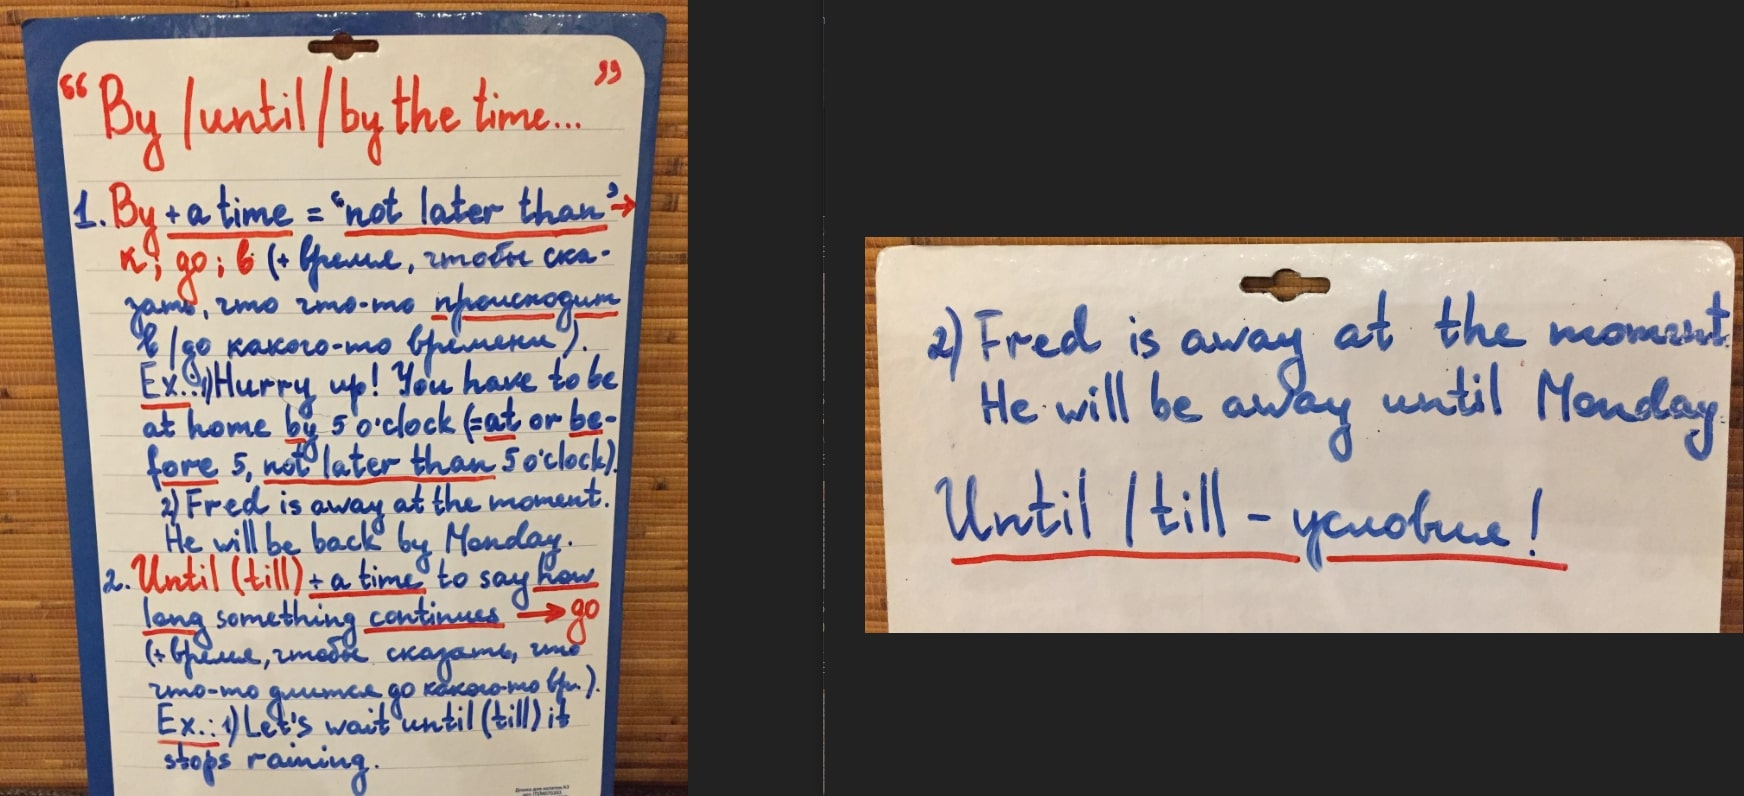 “By / until / by the time...”
1. By + a time = “not later than” →
к; до; в (+ время, чтобы ска-
зать, что что-то происходит
в / до какого-то времени).
Ex.: 1) Hurry up! You have to be
at home by 5 o'clock (= at or be-
fore 5, not later than 5 o'clock).
2) Fred is away at the moment.
He will be back by Monday.
2. Until (till) + a time to say how
long something continues → до
(+ время, чтобы сказать, что
что-то длится до какого-то вр.).
Ex.: 1) Let's wait until (till) it
stops raining.
2) Fred is away at the moment.
He will be away until Monday.
Until / till - условие!